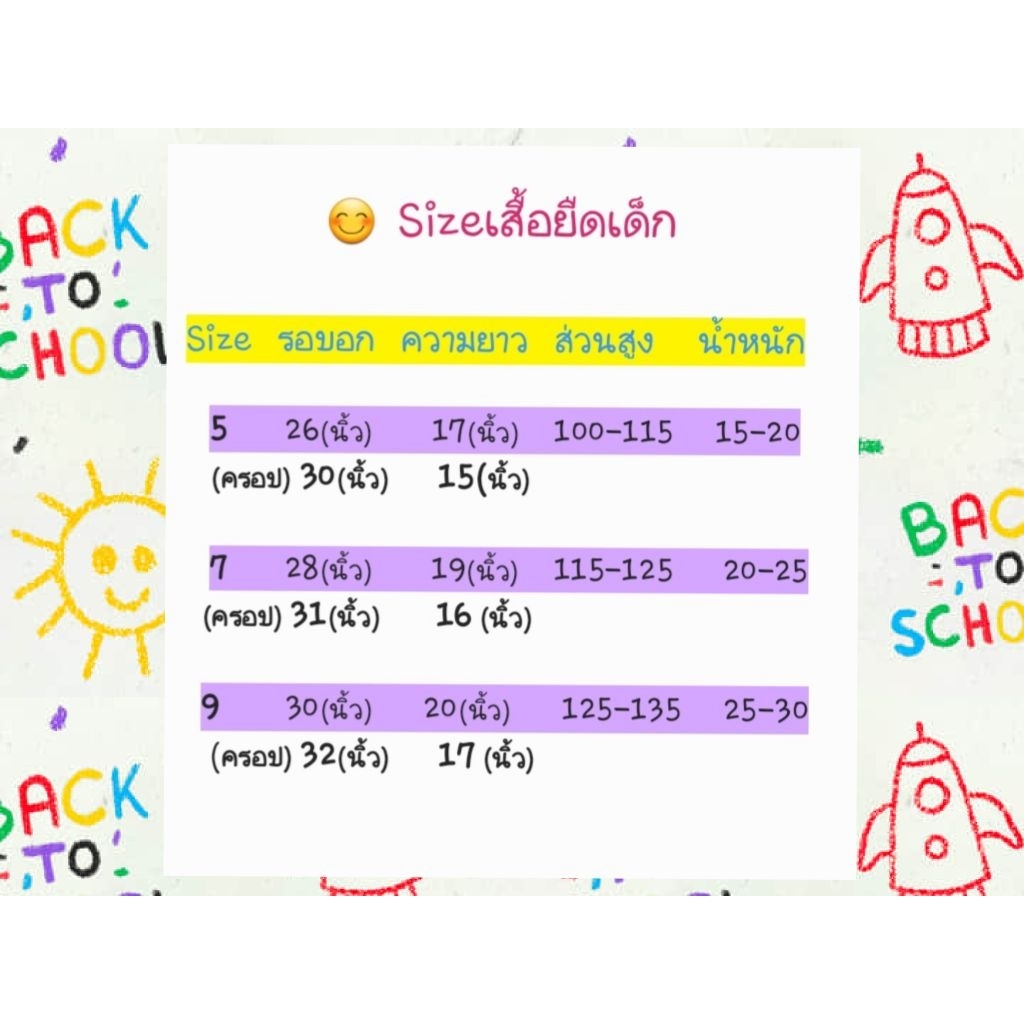 BACK
TO
SCHOOL
😊 Sizeเสื้อยืดเด็ก
Size รอบอก ความยาว ส่วนสูง น้ำหนัก
5 26(นิ้ว) 17(นิ้ว) 100-115 15-20
(ครอป) 30(นิ้ว) 15(นิ้ว)
7 28(นิ้ว) 19(นิ้ว) 115-125 20-25
(ครอป) 31(นิ้ว) 16 (นิ้ว)
9 30(นิ้ว) 20(นิ้ว) 125-135 25-30
(ครอป) 32(นิ้ว) 17 (นิ้ว)
BAC
TO
SCHO
ACK
TO